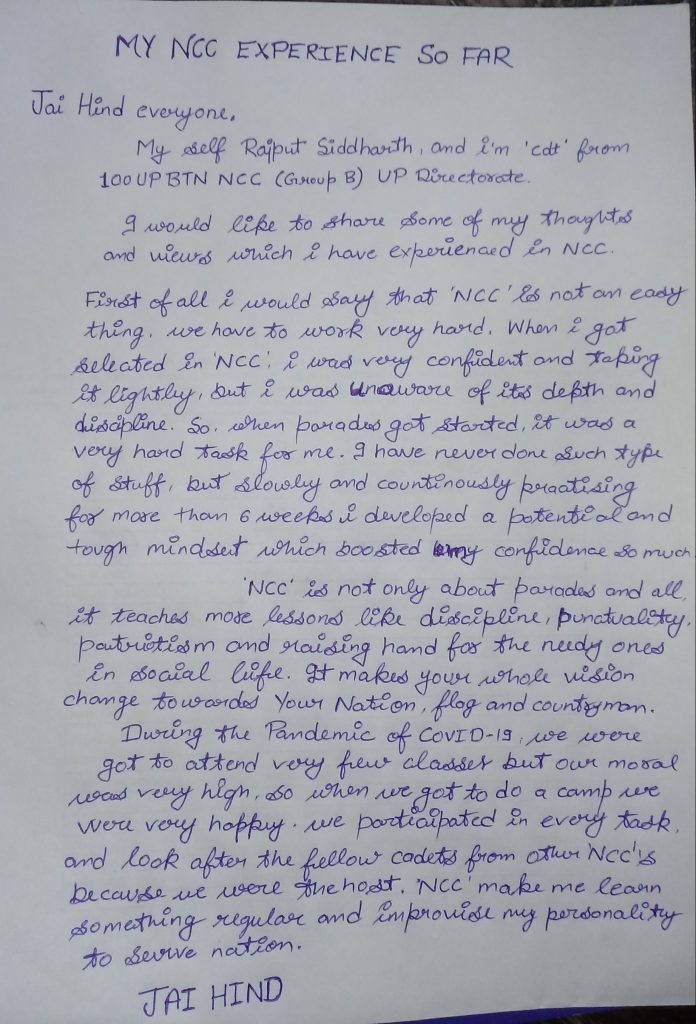 MY NCC EXPERIENCE SO FAR
Jai Hind everyone,
My self Rajput Siddharth, and i'm 'cdt' from
100 UP BTN NCC (Group B) UP Directorate.
I would like to share some of my thoughts
and views which i have experienced in NCC.
First of all i would say that 'NCC' is not an easy
thing. we have to work very hard. When i got
selected in 'NCC', i was very confident and taking
it lightly, but i was unaware of its depth and
discipline. So, when parades got started, it was a
very hard task for me. I have never done such type
of stuff, but slowly and countinously practising
for more than 6 weeks i developed a potential and
tough mindset which boosted my confidence so much.
'NCC' is not only about parades and all,
it teaches more lessons like discipline, punctuality,
patriotism and raising hand for the needy ones
in social life. It makes your whole vision
change towardes Your Nation, flag and countryman.
During the Pandemic of COVID-19, we were
got to attend very few classes but our moral
was very high, so when we got to do a camp we
were very happy. we participated in every task,
and look after the fellow cadets from other NCC's
because we were the host. 'NCC' make me learn
something regular and improvise my personality
to serve nation.
JAI HIND